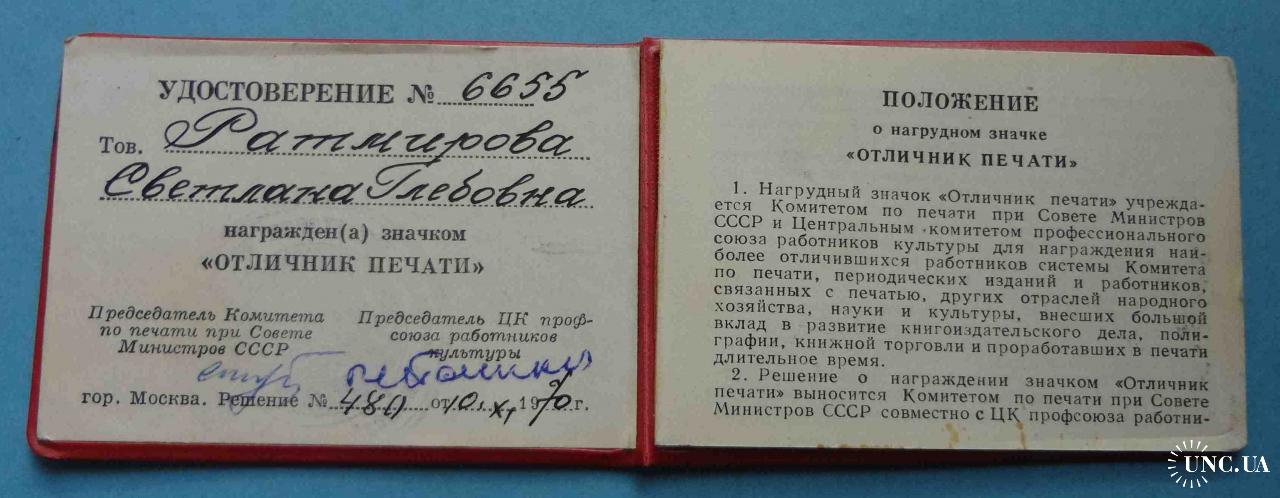 УДОСТОВЕРЕНИЕ № 6655
Тов. Ратмирова
Светлана Глебовна
награжден(а) значком
«ОТЛИЧНИК ПЕЧАТИ»
Председатель Комитета
по печати при Совете
Министров СССР
Председатель ЦК проф-
союза работников
культуры
гор. Москва. Решение № 480 от 10.XI 1970 г.
ПОЛОЖЕНИЕ
о нагрудном значке
«ОТЛИЧНИК ПЕЧАТИ»
1. Нагрудный значок «Отличник печати» учрежда-
ется Комитетом по печати при Совете Министров
СССР и Центральным комитетом профессионального
союза работников культуры для награждения наи-
более отличившихся работников системы Комитета
по печати, периодических изданий и работников,
связанных с печатью, других отраслей народного
хозяйства, науки и культуры, внесших большой
вклад в развитие книгоиздательского дела, поли-
графии, книжной торговли и проработавших в печати
длительное время.
2. Решение о награждении значком «Отличник
печати» выносится Комитетом по печати при Совете
Министров СССР совместно с ЦК профсоюза работни-
UNC.UA